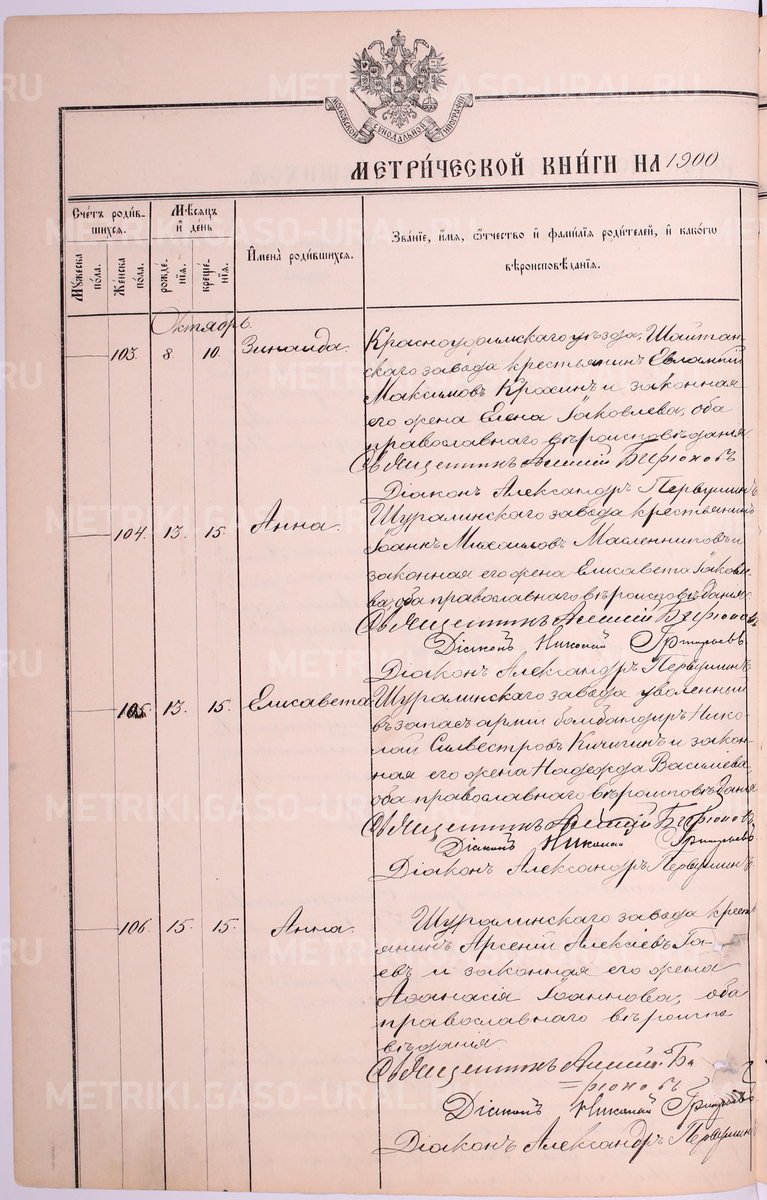 МОСКОВСКОЙ СУНОДАЛЬНОЙ ТИПОГРАФІИ
МЕТРИ́ЧЕСКОЙ КНИ́ГИ НА 1900
Сче́тъ роди́в-
шихся.
Мѣ́сяцъ
и҆ де́нь
Мꙋжеска по́ла.
Же́нска по́ла.
рожде́-
нїѧ.
креще́-
нїѧ.
И҆мена̀ роди́вшихся.
Зва́нїе, и҆́мѧ, ѻ҆́тчество и҆ фами́лїѧ роди́телей, и҆ како́гѡ
вѣроисповѣ́данїѧ.
Октябрь.
103. 8. 10. Зинаида.
Красноуфимскаго уѣзда, Шайтан-
скаго завода крестьянинъ Евлампій
Максимовъ Крохинъ и законная
его жена Елена Іаковлева, оба
православнаго вѣроисповѣданія
Священникъ Алексій Бирюковъ
Діаконъ Александръ Первушинъ
104. 13. 15. Анна.
Шуралинскаго завода крестьянинъ
Іоаннъ Михаиловъ Масленниковъ и
законная его жена Елисавета Іаковле-
ва, оба православнаго вѣроисповѣданія
Священникъ Алексій Бирюковъ
Діаконъ Николай Григорьевъ
Діаконъ Александръ Первушинъ
105. 13. 15. Елисавета
Шуралинскаго завода уволенный
въ запасъ арміи бомбандиръ Нико-
лай Силвестровъ Кичигинъ и закон-
ная его жена Надежда Василіева,
оба православнаго вѣроисповѣданія
Священникъ Алексій Бирюковъ
Діаконъ Николай Григорьевъ
Діаконъ Александръ Первушинъ
106. 15. 15. Анна.
Шуралинскаго завода кресть-
янинъ Арсеній Алексіевъ Га-
евъ и законная его жена
Аѳанасія Іоаннова, оба
православнаго вѣроиспо-
вѣданія.
Священникъ Алексій Би
=рюковъ
Діаконъ Николай Григорьевъ
Діаконъ Александръ Первушин
METRIKI.GASO-URAL.RU